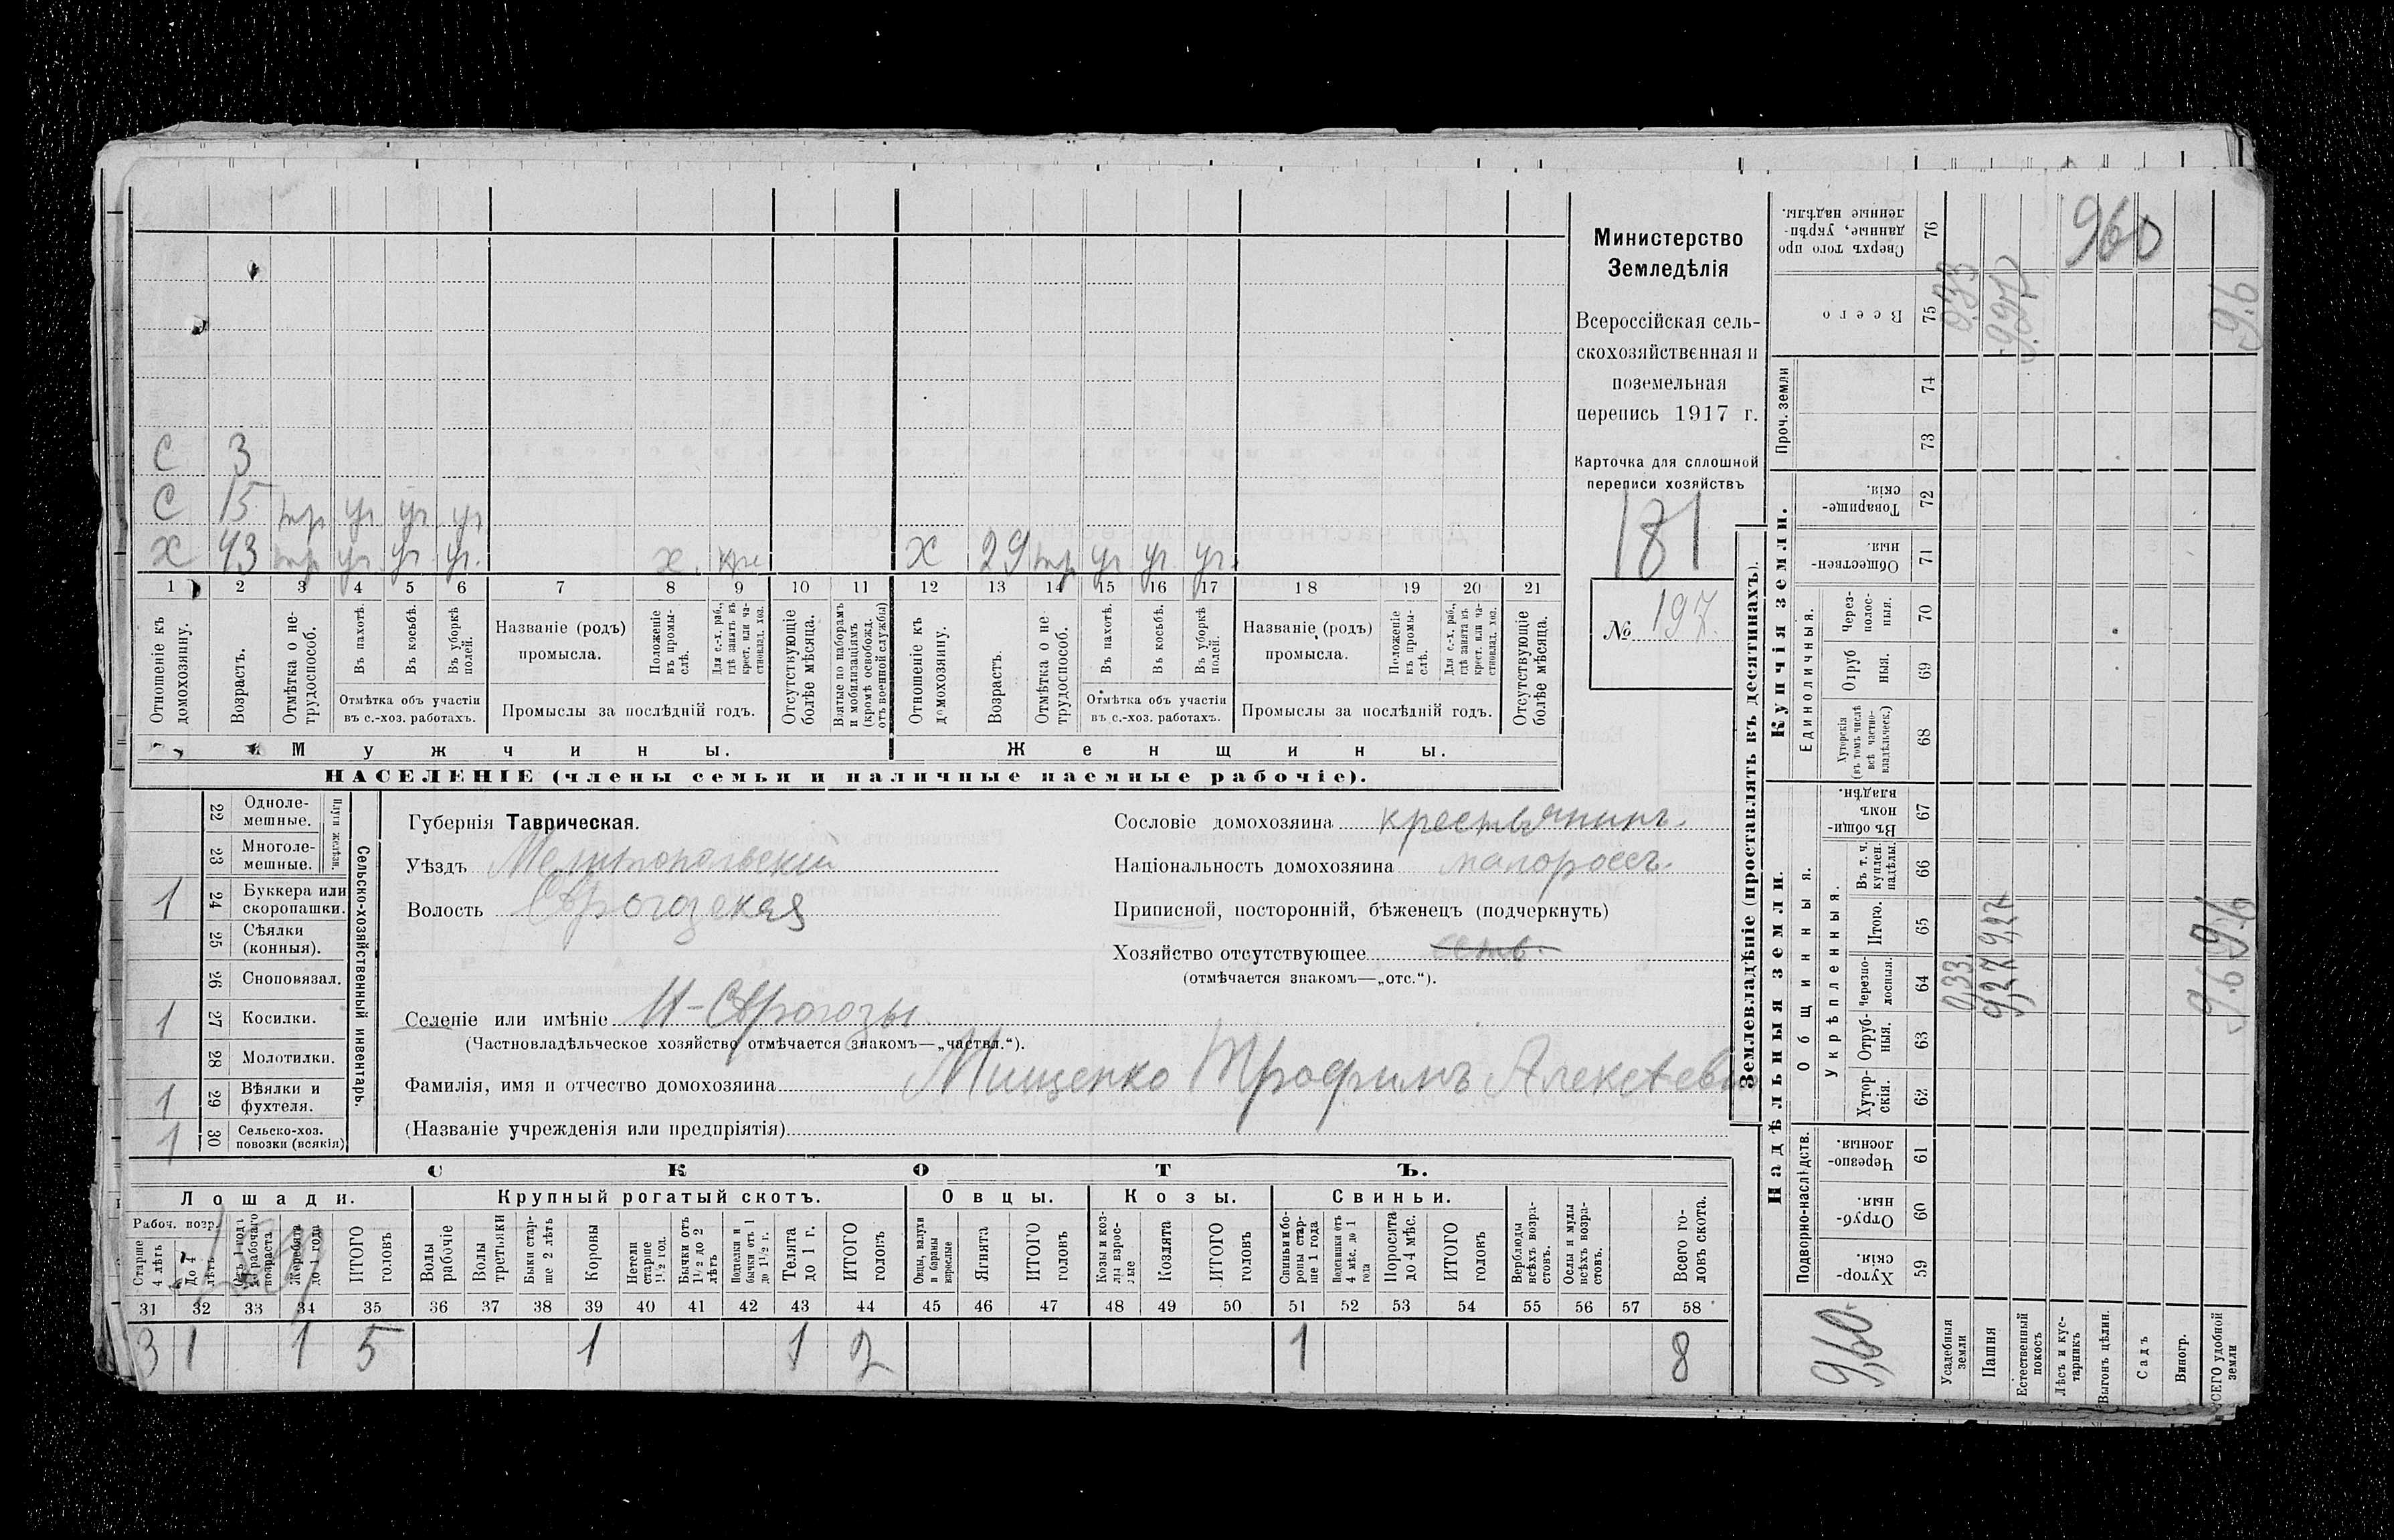 Министерство
Земледѣлія
Всероссійская сель-
скохозяйственная и
поземельная
перепись 1917 г.
Карточка для сплошной
переписи хозяйствъ
181
№ 197.
С 3
С 15 тр уч уч уч
Х 43 тр уч уч уч. х. кре Х 29 тр уч уч уч.
1 2 3 4 5 6 7 8 9 10 11 12 13 14 15 16 17 18 19 20 21
Отношеніе къ домохозяину.
Возрастъ.
Отмѣтка о не-трудоспособ.
Въ пахотѣ.
Въ косьбѣ.
Въ уборкѣ полей.
Отмѣтка объ участіи
въ с.-хоз. работахъ.
Названіе (родъ)
промысла.
Положеніе въ промы-слѣ.
Для с.-х. раб., гдѣ занятъ въ крест. или ча-стновлад. хоз.
Промыслы за послѣдній годъ.
Отсутствующіе болѣе мѣсяца.
Взятые по наборамъ и мобилизаціямъ (кромѣ освобожд. отъ военной службы)
Отношеніе къ домохозяину.
Возрастъ.
Отмѣтка о не-трудоспособ.
Въ пахотѣ.
Въ косьбѣ.
Въ уборкѣ полей.
Отмѣтка объ участіи
въ с.-хоз. работахъ.
Названіе (родъ)
промысла.
Положеніе въ промы-слѣ.
Для с.-х. раб., гдѣ занята въ крест. или ча-стновлад. хоз.
Промыслы за послѣдній годъ.
Отсутствующіе болѣе мѣсяца.
Мужчины. Женщины.
НАСЕЛЕНІЕ (члены семьи и наличные наемные рабочіе).
Сельско-хозяйственный инвентарь.
Плуги желѣзн.
22 Одноле-мешные.
23 Многоле-мешные.
1 24 Буккера или скоропашки.
25 Сѣялки (конныя).
26 Сноповязал.
1 27 Косилки.
28 Молотилки.
1 29 Вѣялки и фухтеля.
1 30 Сельско-хоз. повозки (всякія)
Губернія Таврическая.
Уѣздъ Мелитопольскій
Волость
Селеніе или имѣніе
(Частновладѣльческое хозяйство отмѣчается знакомъ—„частвл.“).
Фамилія, имя и отчество домохозяина Мищенко Трофимъ Алексѣев
(Названіе учрежденія или предпріятія)
Сословіе домохозяина крестьянинъ.
Національность домохозяина малороссъ.
Приписной, посторонній, бѣженецъ (подчеркнуть)
Хозяйство отсутствующее
(отмѣчается знакомъ—„отс.“).
СКОТЪ.
Лошади. Крупный рогатый скотъ. Овцы. Козы. Свиньи.
Рабоч. возр.
Старше 4 лѣтъ
До 4 лѣтъ
Отъ 1 года до рабочаго возраста
Жеребята до 1 года
ИТОГО головъ
Волы рабочіе
Волы третьяки
Быки стар-ше 2 лѣтъ
Коровы
Нетели старше 1½ год.
Бычки отъ 1½ до 2 лѣтъ
Подтелки и бычки отъ 1 до 1½ г.
Телята до 1 г.
ИТОГО головъ
Овцы, валухи и бараны взрослые
Ягнята
ИТОГО головъ
Козы и коз-лы взрос-лые
Козлята
ИТОГО головъ
Свиньи и бо-ровы стар-ше 1 года
Подсвинки отъ 4 мѣс. до 1 года
Поросята до 4 мѣс.
ИТОГО головъ
Верблюды всѣхъ возра-стовъ.
Ослы и мулы всѣхъ возра-стовъ.
Всего го-ловъ скота.
31 32 33 34 35 36 37 38 39 40 41 42 43 44 45 46 47 48 49 50 51 52 53 54 55 56 57 58
3 1 1 5 1 1 2 1 8
Землевладѣніе (проставлять въ десятинахъ).
Надѣльныя земли.
Купчія земли.
Проч. земли
Подворно-наслѣдств.
Общинныя.
Укрѣпленныя.
Единоличныя.
Хутор-скія. 59
Отруб-ныя. 60
Черезпо-лосныя. 61
Хутор-скія. 62
Отруб-ныя. 63
Черезпо-лосныя. 64
Итого. 65
Въ т. ч. куплен. надѣлы. 66
Въ общин-номъ владѣн. 67
Хуторскія (въ томъ числѣ всѣ частно-владѣльческ.) 68
Отруб ныя. 69
Через-полос-ныя. 70
Обществен-ныя. 71
Товарище-скія. 72
73
74
Всего 75
Сверхъ того про-данные, укрѣп-ленные надѣлы. 76
9,60.
Усадебныя земли 0,33
Пашня 9,27 9,27
Естественный покосъ
Лѣсъ и кус-тарникъ
Выгонъ цѣлин.
Садъ
Виногр.
ВСЕГО удобной земли 9.6 9.6 9.6
960